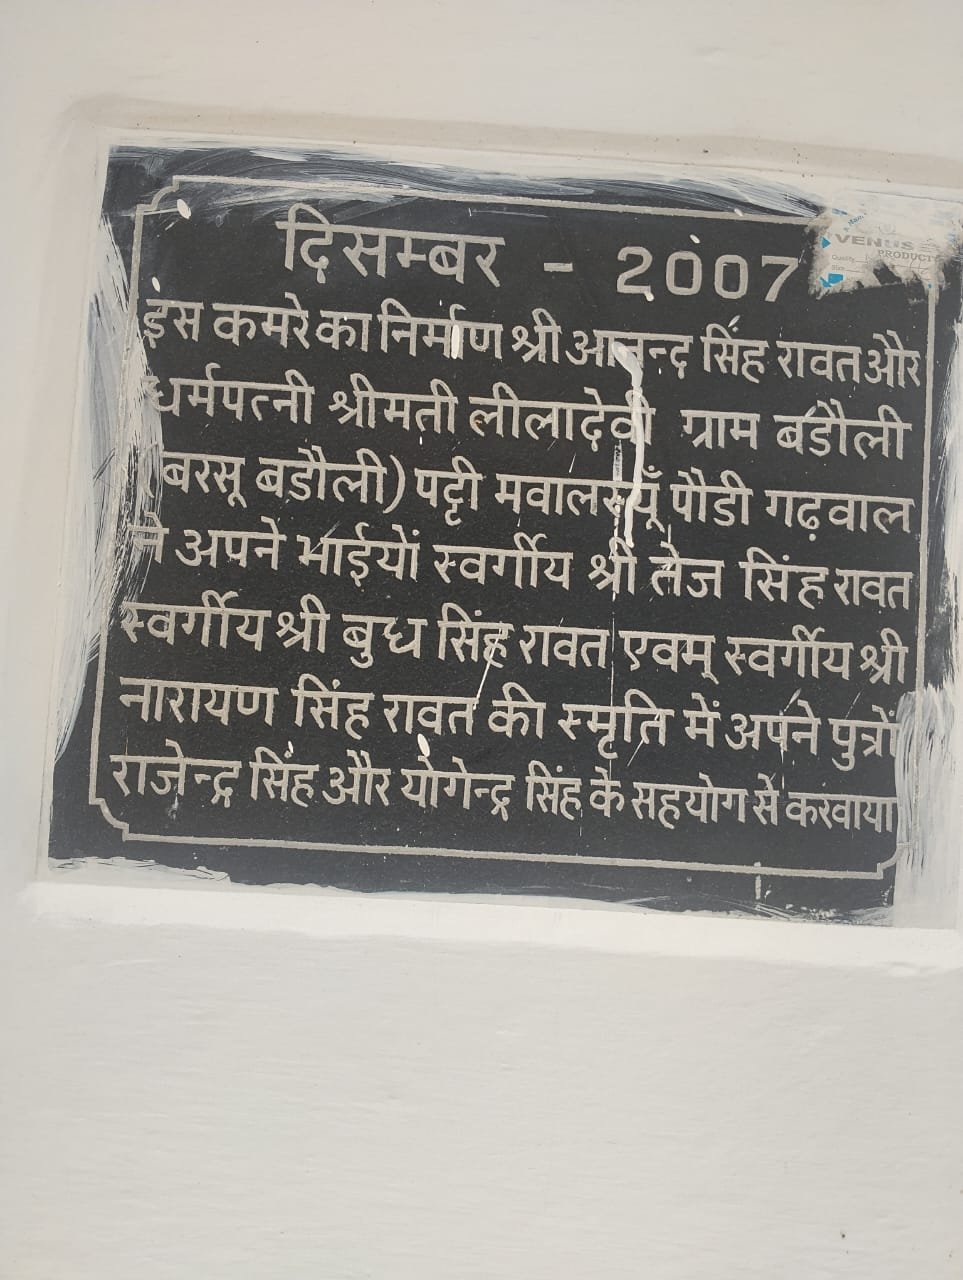 दिसम्बर - 2007
VENUS
PRODUCT
Quality
Size
इस कमरे का निर्माण श्री आनन्द सिंह रावत और
धर्मपत्नी श्रीमती लीलादेवी ग्राम बडौली
(बरसू बडौली) पट्टी मवालस्यूँ पौडी गढ़वाल
ने अपने भाईयों स्वर्गीय श्री तेज सिंह रावत
स्वर्गीय श्री बुध सिंह रावत एवम् स्वर्गीय श्री
नारायण सिंह रावत की स्मृति में अपने पुत्रों
राजेन्द्र सिंह और योगेन्द्र सिंह के सहयोग से करवाया